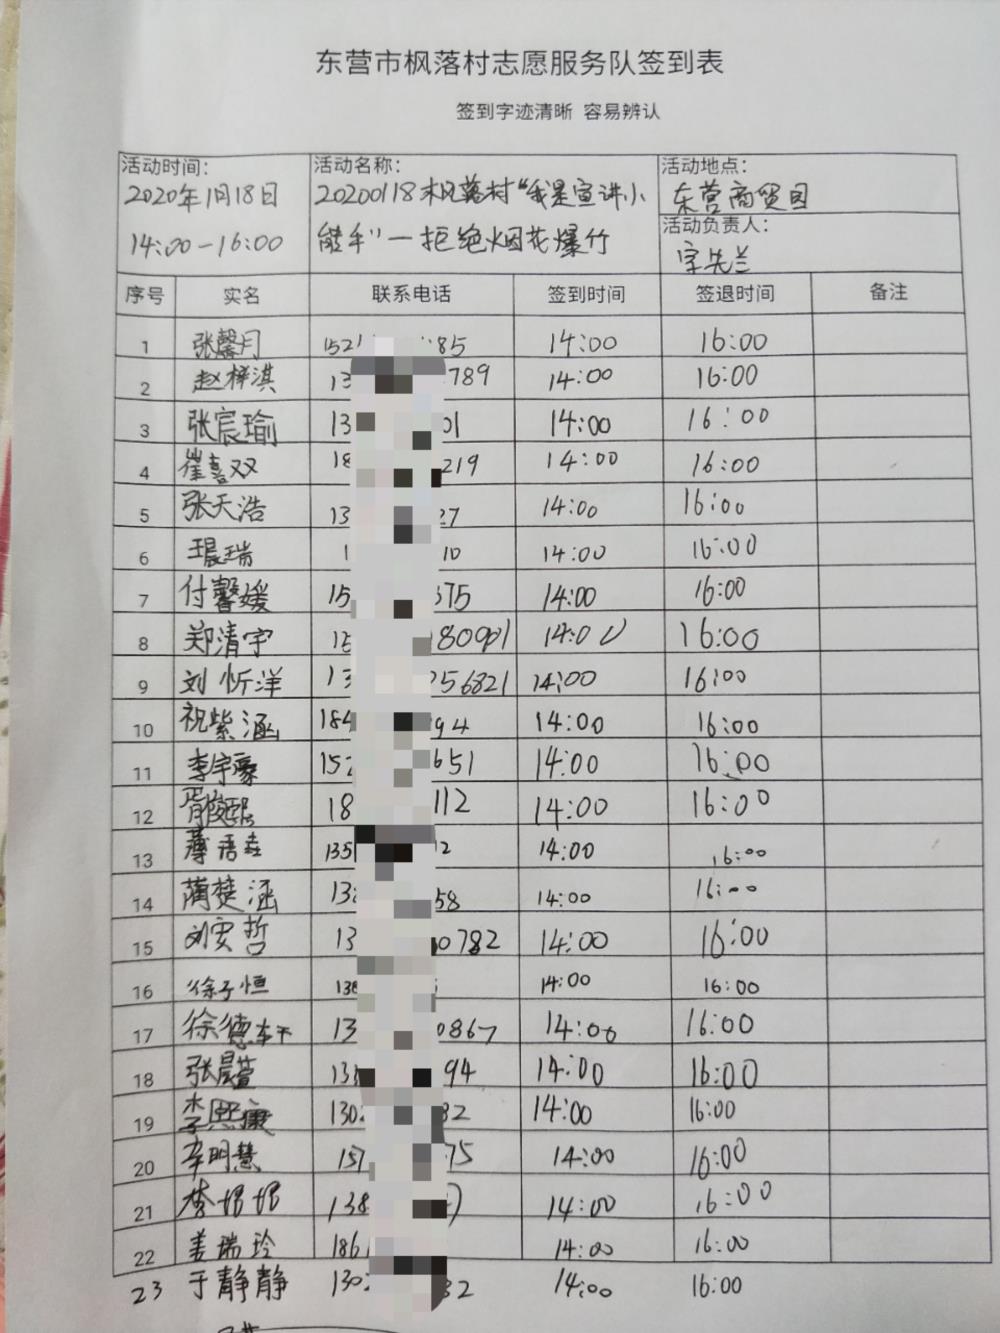 东营市枫落村志愿服务队签到表
签到字迹清晰 容易辨认
活动时间: 活动名称: 活动地点:
2020年1月18日 20200118枫落村“我是宣讲小 东营商贸园
14:00-16:00 能手”一拒绝烟花爆竹 活动负责人:
先兰
序号 实名 联系电话 签到时间 签退时间 备注
1 张馨月 152 85 14:00 16:00
2 赵梓淇 13 789 14:00 16:00
3 张宸瑜 13 01 14:00 16:00
4 崔喜双 18 219 14:00 16:00
5 张天浩 13 27 14:00 16:00
6 王晨瑞 1 10 14:00 16:00
7 付馨媛 15 375 14:00 16:00
8 郑清宇 15 80901 14:00 16:00
9 刘忻洋 13 256821 14:00 16:00
10 祝紫涵 184 94 14:00 16:00
11 李宇豪 152 651 14:00 16:00
12 胥俊熙 18 112 14:00 16:00
13 薄 135 2 14:00 16:00
14 蔺楚涵 138 58 14:00 16:00
15 刘安哲 13 0782 14:00 16:00
16 徐子恒 138 14:00 16:00
17 徐德轩 13 0867 14:00 16:00
18 张晨萱 13 94 14:00 16:00
19 李熙康 130 82 14:00 16:00
20 辛明慧 151 75 14:00 16:00
21 138 14:00 16:00
22 姜瑞玲 186 14:00 16:00
23 于静静 130 82 14:00 16:00